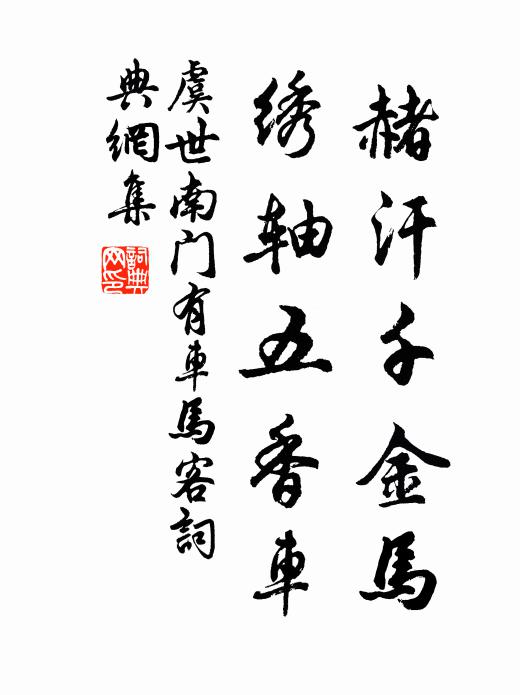 赭汗千金馬
绣轴五香車
虞世南门有車馬客詞
典網集
詞典
网印